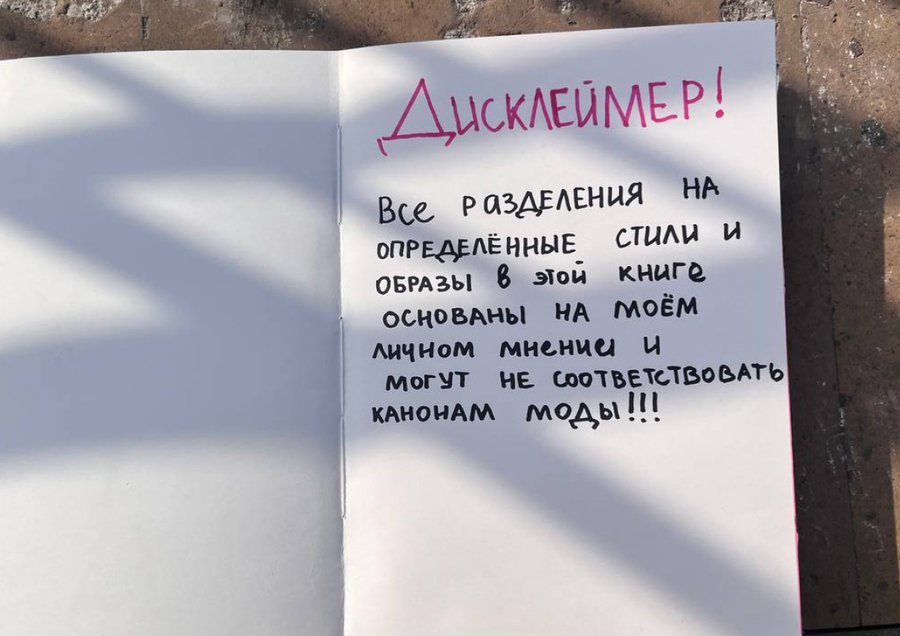 Дисклеймер!
Все разделения на
определённые стили и
образы в этой книге
основаны на моём
личном мнении и
могут не соответствовать
канонам моды!!!